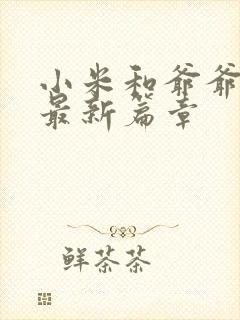 小米和爷爷
最新篇章
鲜茶茶